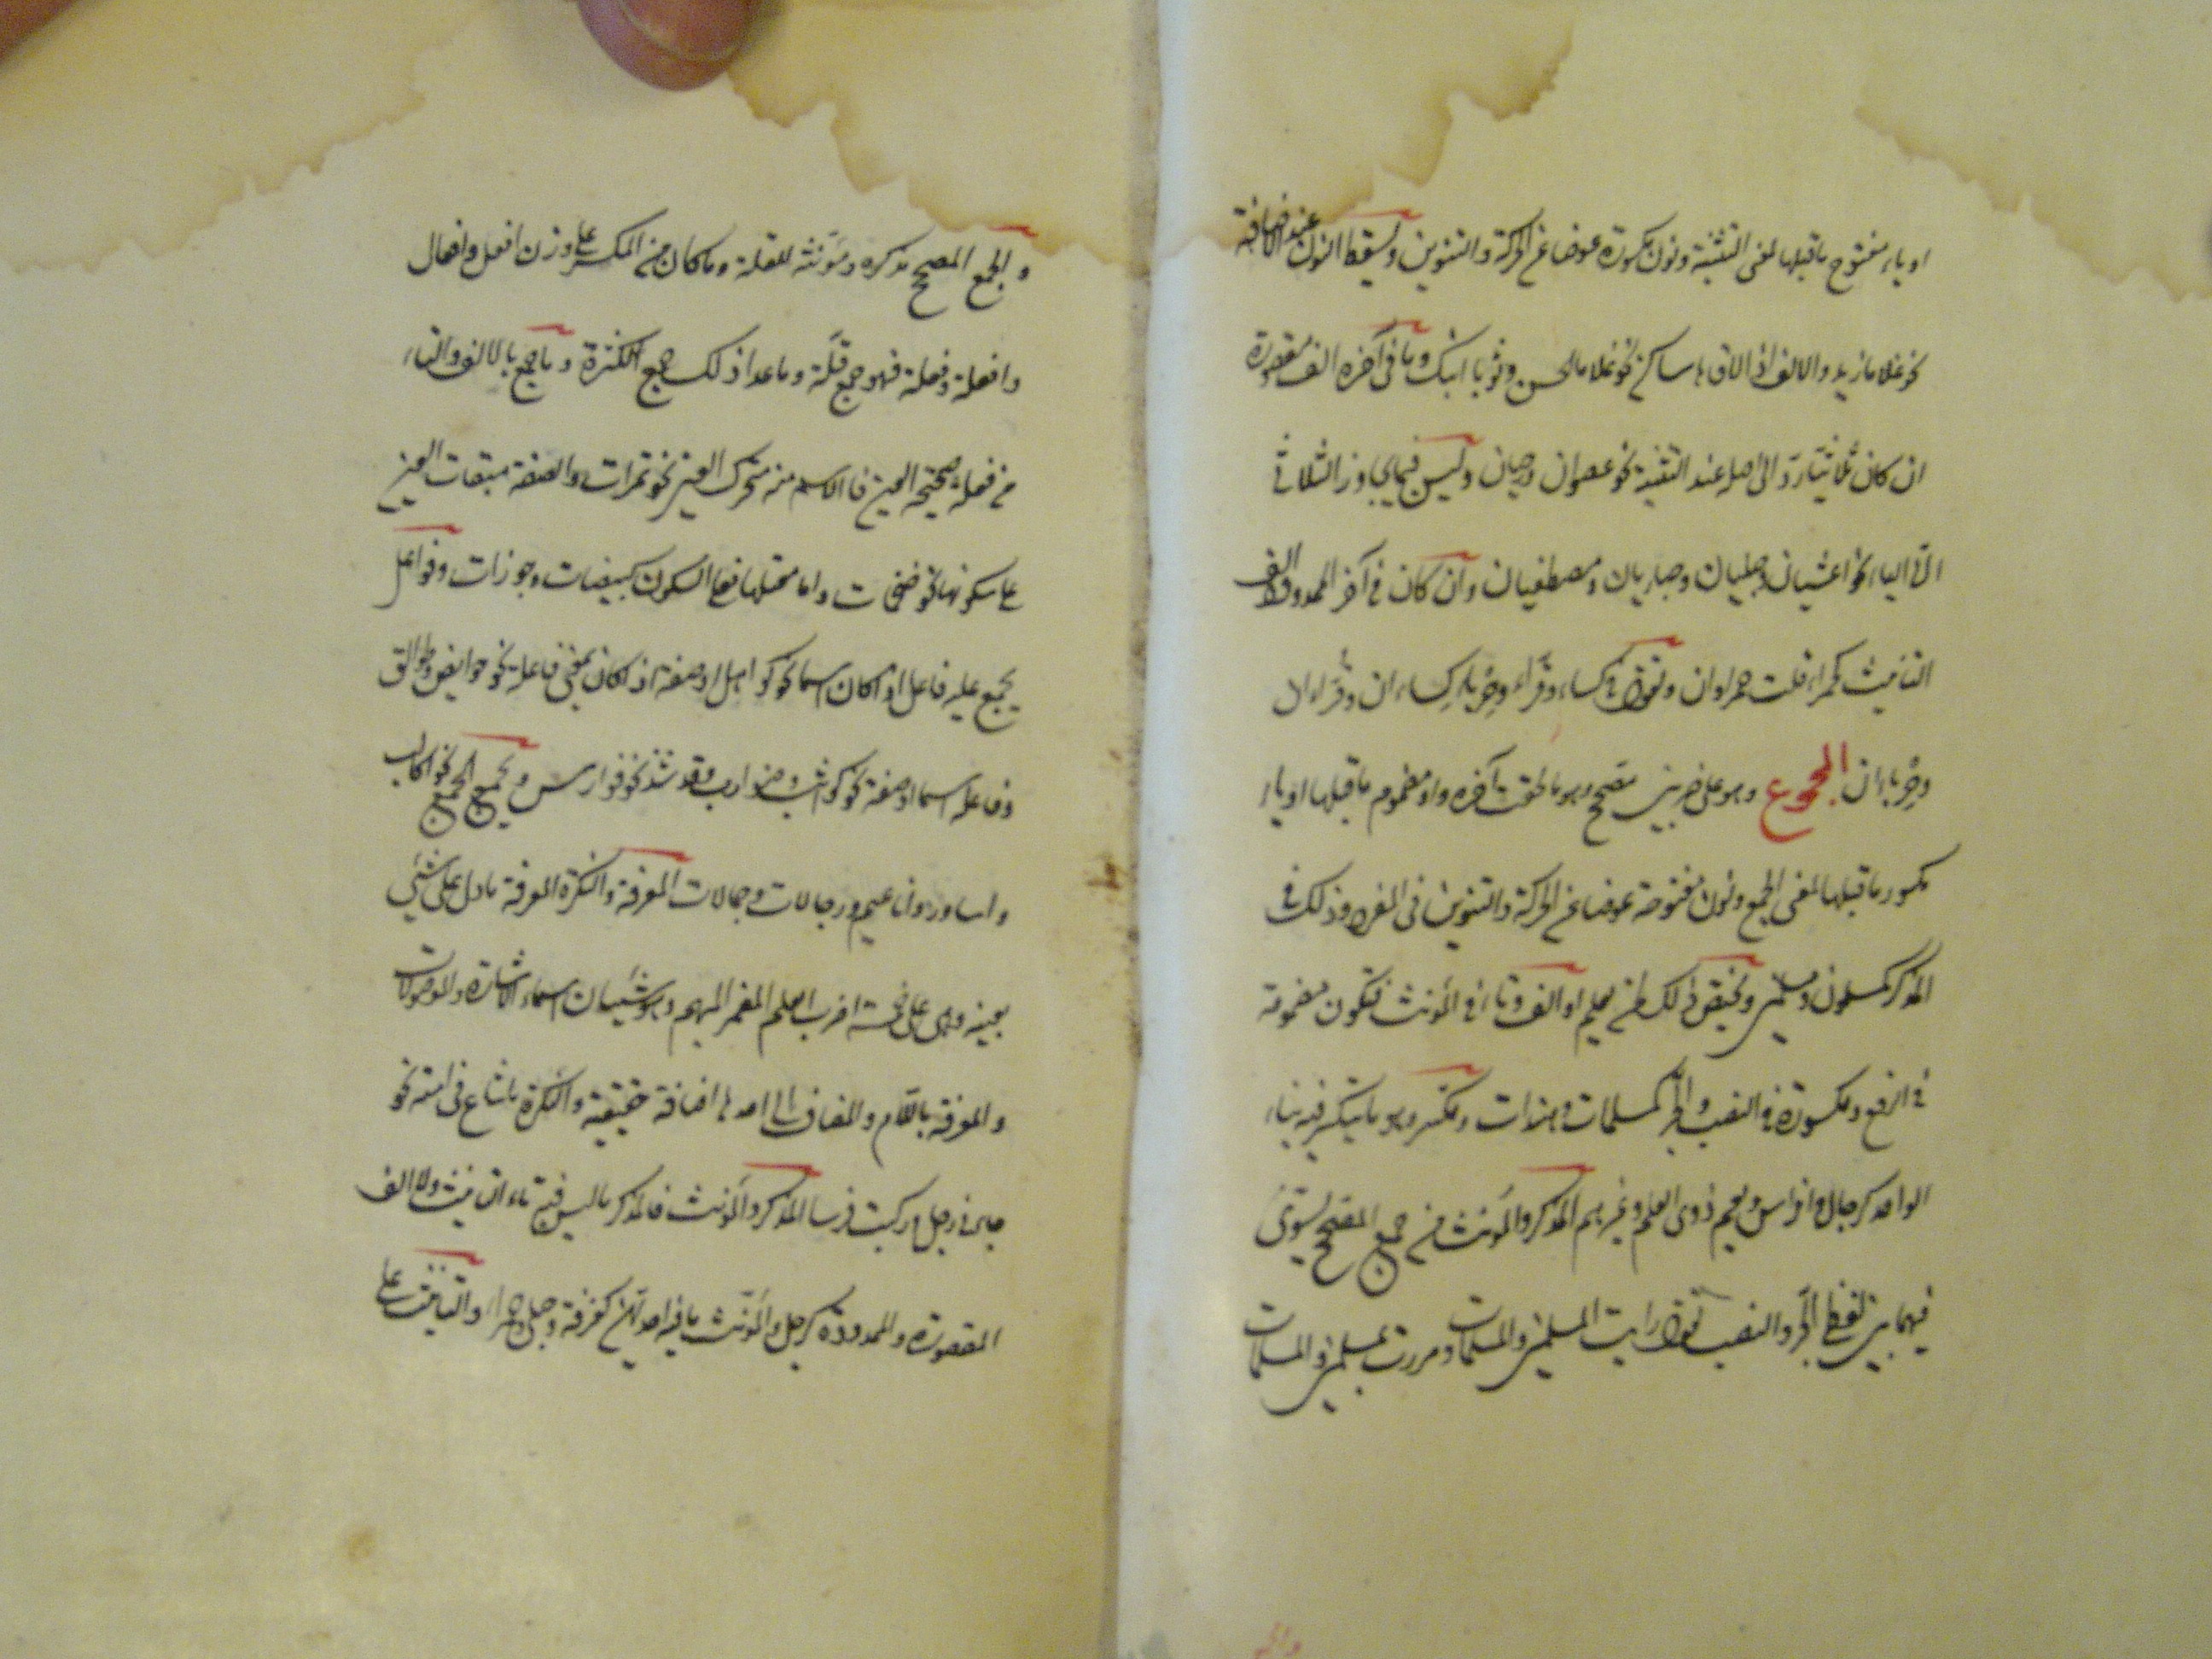 او ياء مفتوح ما قبلها لمعنى التثنية ونون مكسورة عوضا عن الحركة والتنوين وتسقط النون عند الاضافة
نحو غلاما زيد والالف اذا لاقاها ساكن نحو غلاما الحسن وثوبا ابنك وما فى آخره الف مقصورة
ان كان ثلاثيا رد الى اصله عند التثنية نحو عصوان ورحيان وليس فيما يجاوز الثلاثى
الا الياء نحو اعشيان وحبليان وحباريان ومصطفيان وان كان فى آخر الممدود الف
التانيث كحمراء قلت حمراوان وتقول فى كساء وقراء وحرباء كساءان وقراءان
وحرباءان المجموع وهو على ضربين مصحح وهو ما لحقت آخره واو مضموم ما قبلها او ياء
مكسور ما قبلها لمعنى الجمع ونون مفتوحة عوضا عن الحركة والتنوين فى المفرد وذلك فى
المذكر كمسلمون ومسلمين ويختص ذلك بمن يعلم او الف وتاء فى المؤنث فتكون مضمومة
فى الرفع ومكسورة فى النصب والجر كمسلمات وهندات ومكسر وهو ما يتكسر فيه بناء
الواحد كرجال وافراس ويعم ذوى العلم وغيرهم المذكر والمؤنث من جمع المصحح يسوى
فيهما بين لفظى الجر والنصب تقول رايت المسلمين والمسلمات ومررت بالمسلمين والمسلمات
والجمع المصحح مذكره ومؤنثه للقلة وما كان من المكسر على وزن افعل وافعال
وافعلة وفعلة فهو جمع قلة وما عدا ذلك جمع الكثرة وما جمع بالالف والتاء
من فعلة صحيحة العين فالاسم منه متحرك العين نحو تمرات والصفة مبقات العين
على سكونها نحو ضخمات واما معتلها فعلى السكون كبيضات وجوزات وفواعل
يجمع عليه فاعل اذا كان اسما نحو كواهل او صفة اذا كان بمعنى فاعلة نحو حوايض وطوالق
وفاعلة اسما او صفة نحو كواثب وضوارب وقد شذ نحو فوارس ويجمع الجمع نحو اكالب
واساور واناعيم ورجالات وجمالات المعرفة والنكرة المعرفة ما دل على شىء
بعينه وهى على خمسة اضرب العلم المضمر المبهم وهو شيئان اسماء الاشارة والموصولات
والمعرفة باللام والمضاف الى احدها اضافة حقيقية والنكرة ما شاع فى امته نحو
جاءنى رجل وركبت فرسا المذكر والمؤنث فالمذكر ما ليس فيه تاء التانيث ولا الف
المقصورة والممدودة كرجل والمؤنث ما فيه احديهن كغرفة وحبلى وحمراء والتانيث على